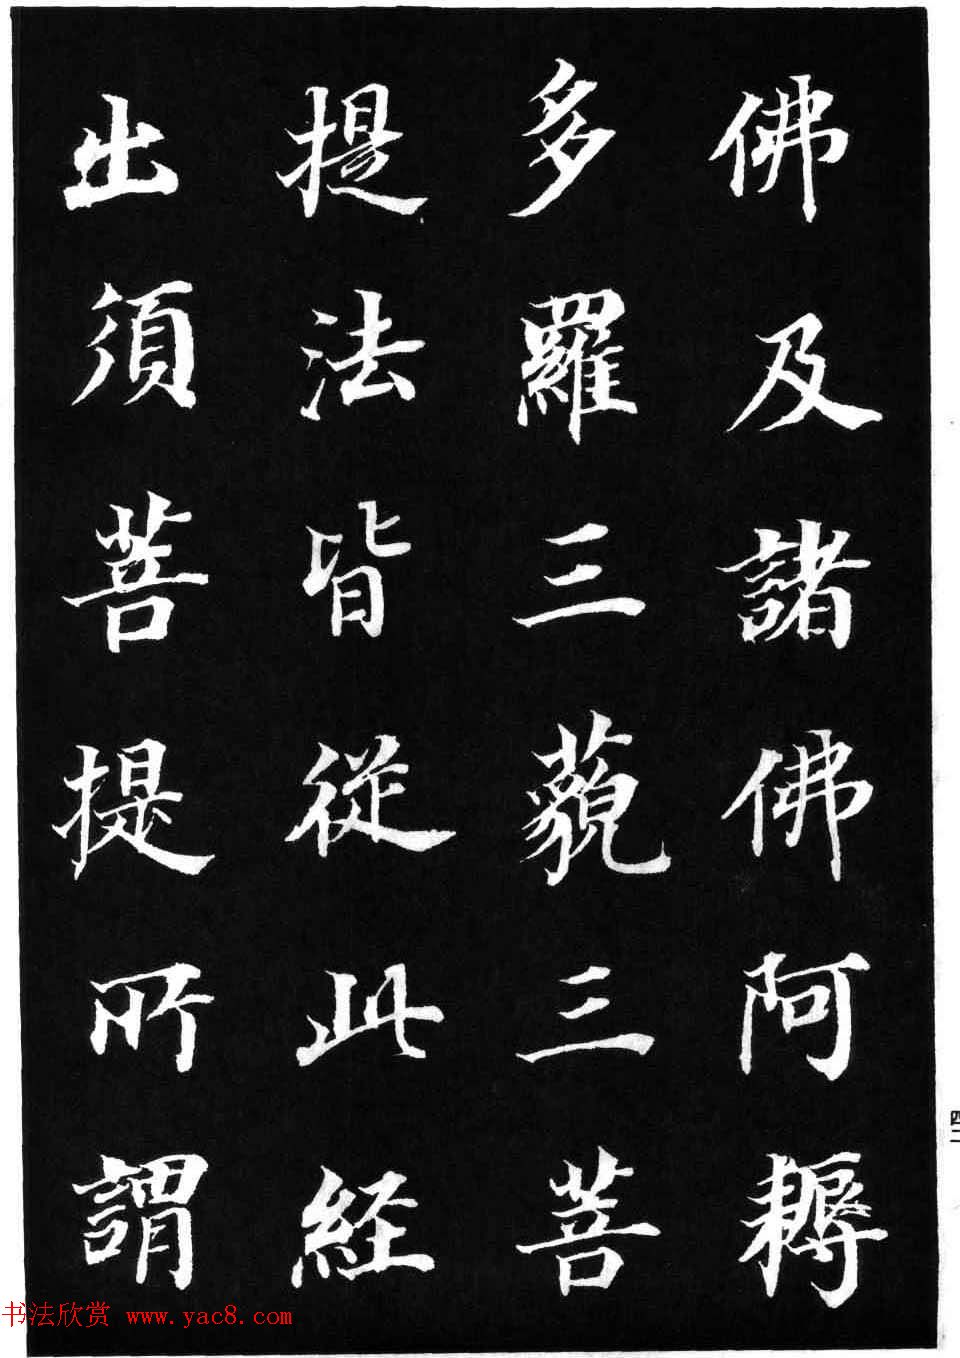 佛及諸佛阿耨
多羅三藐三菩
提法皆從此經
出須菩提所謂
四二
书法欣赏 www.yac8.com